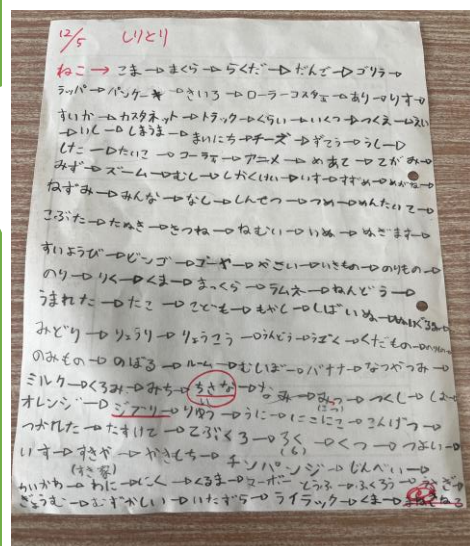 12/5 しりとり
ねこ → こま → まくら → らくだ → だんご → ゴリラ →
ラッパ → パンケーキ → きいろ → ローラーコースター → あり → りす →
すいか → カスタネット → トラック → くらい → いくつ → つくえ → えい
→ いし → しまうま → まいにち → チーズ → ずこう → うし →
した → たいこ → コーラ → アニメ → めあて → てがみ →
みず → ズーム → むし → しかくけい → いす → すずめ → めがね →
ねずみ → みんな → なし → しんせつ → つめ → めんたいこ →
こぶた → たぬき → きつね → ねむい → いぬ → ぬぎます →
すいようび → ビンゴ → ゴーヤ → やさい → いきもの → のりもの →
のり → りく → くま → まっくら → ラムネ → ねんどう →
うまれた → たこ → こども → もやし → しばいぬ →
みどり → りょうり → りょこう → うんどう → うごく → くだもの →
のみもの → のばる → ルーム → むしば → バナナ → なつやすみ →
ミルク → くろみ → みち → ちさな → みつ → つくし →
オレンジ → ジブリ → りゆう → うに → にこにこ → こんげつ →
つかれた → たすけて → てぶくろ → ろく → くつ → つよい →
(ろ)
いす → すきや → やきもち → チンパンジ → じんべい →
(すき家)
いかわ → わに → にく → くるま → とうふ → ふくろう →
ぎょうむ → むずかしい → いたずら → ライラック → くま →